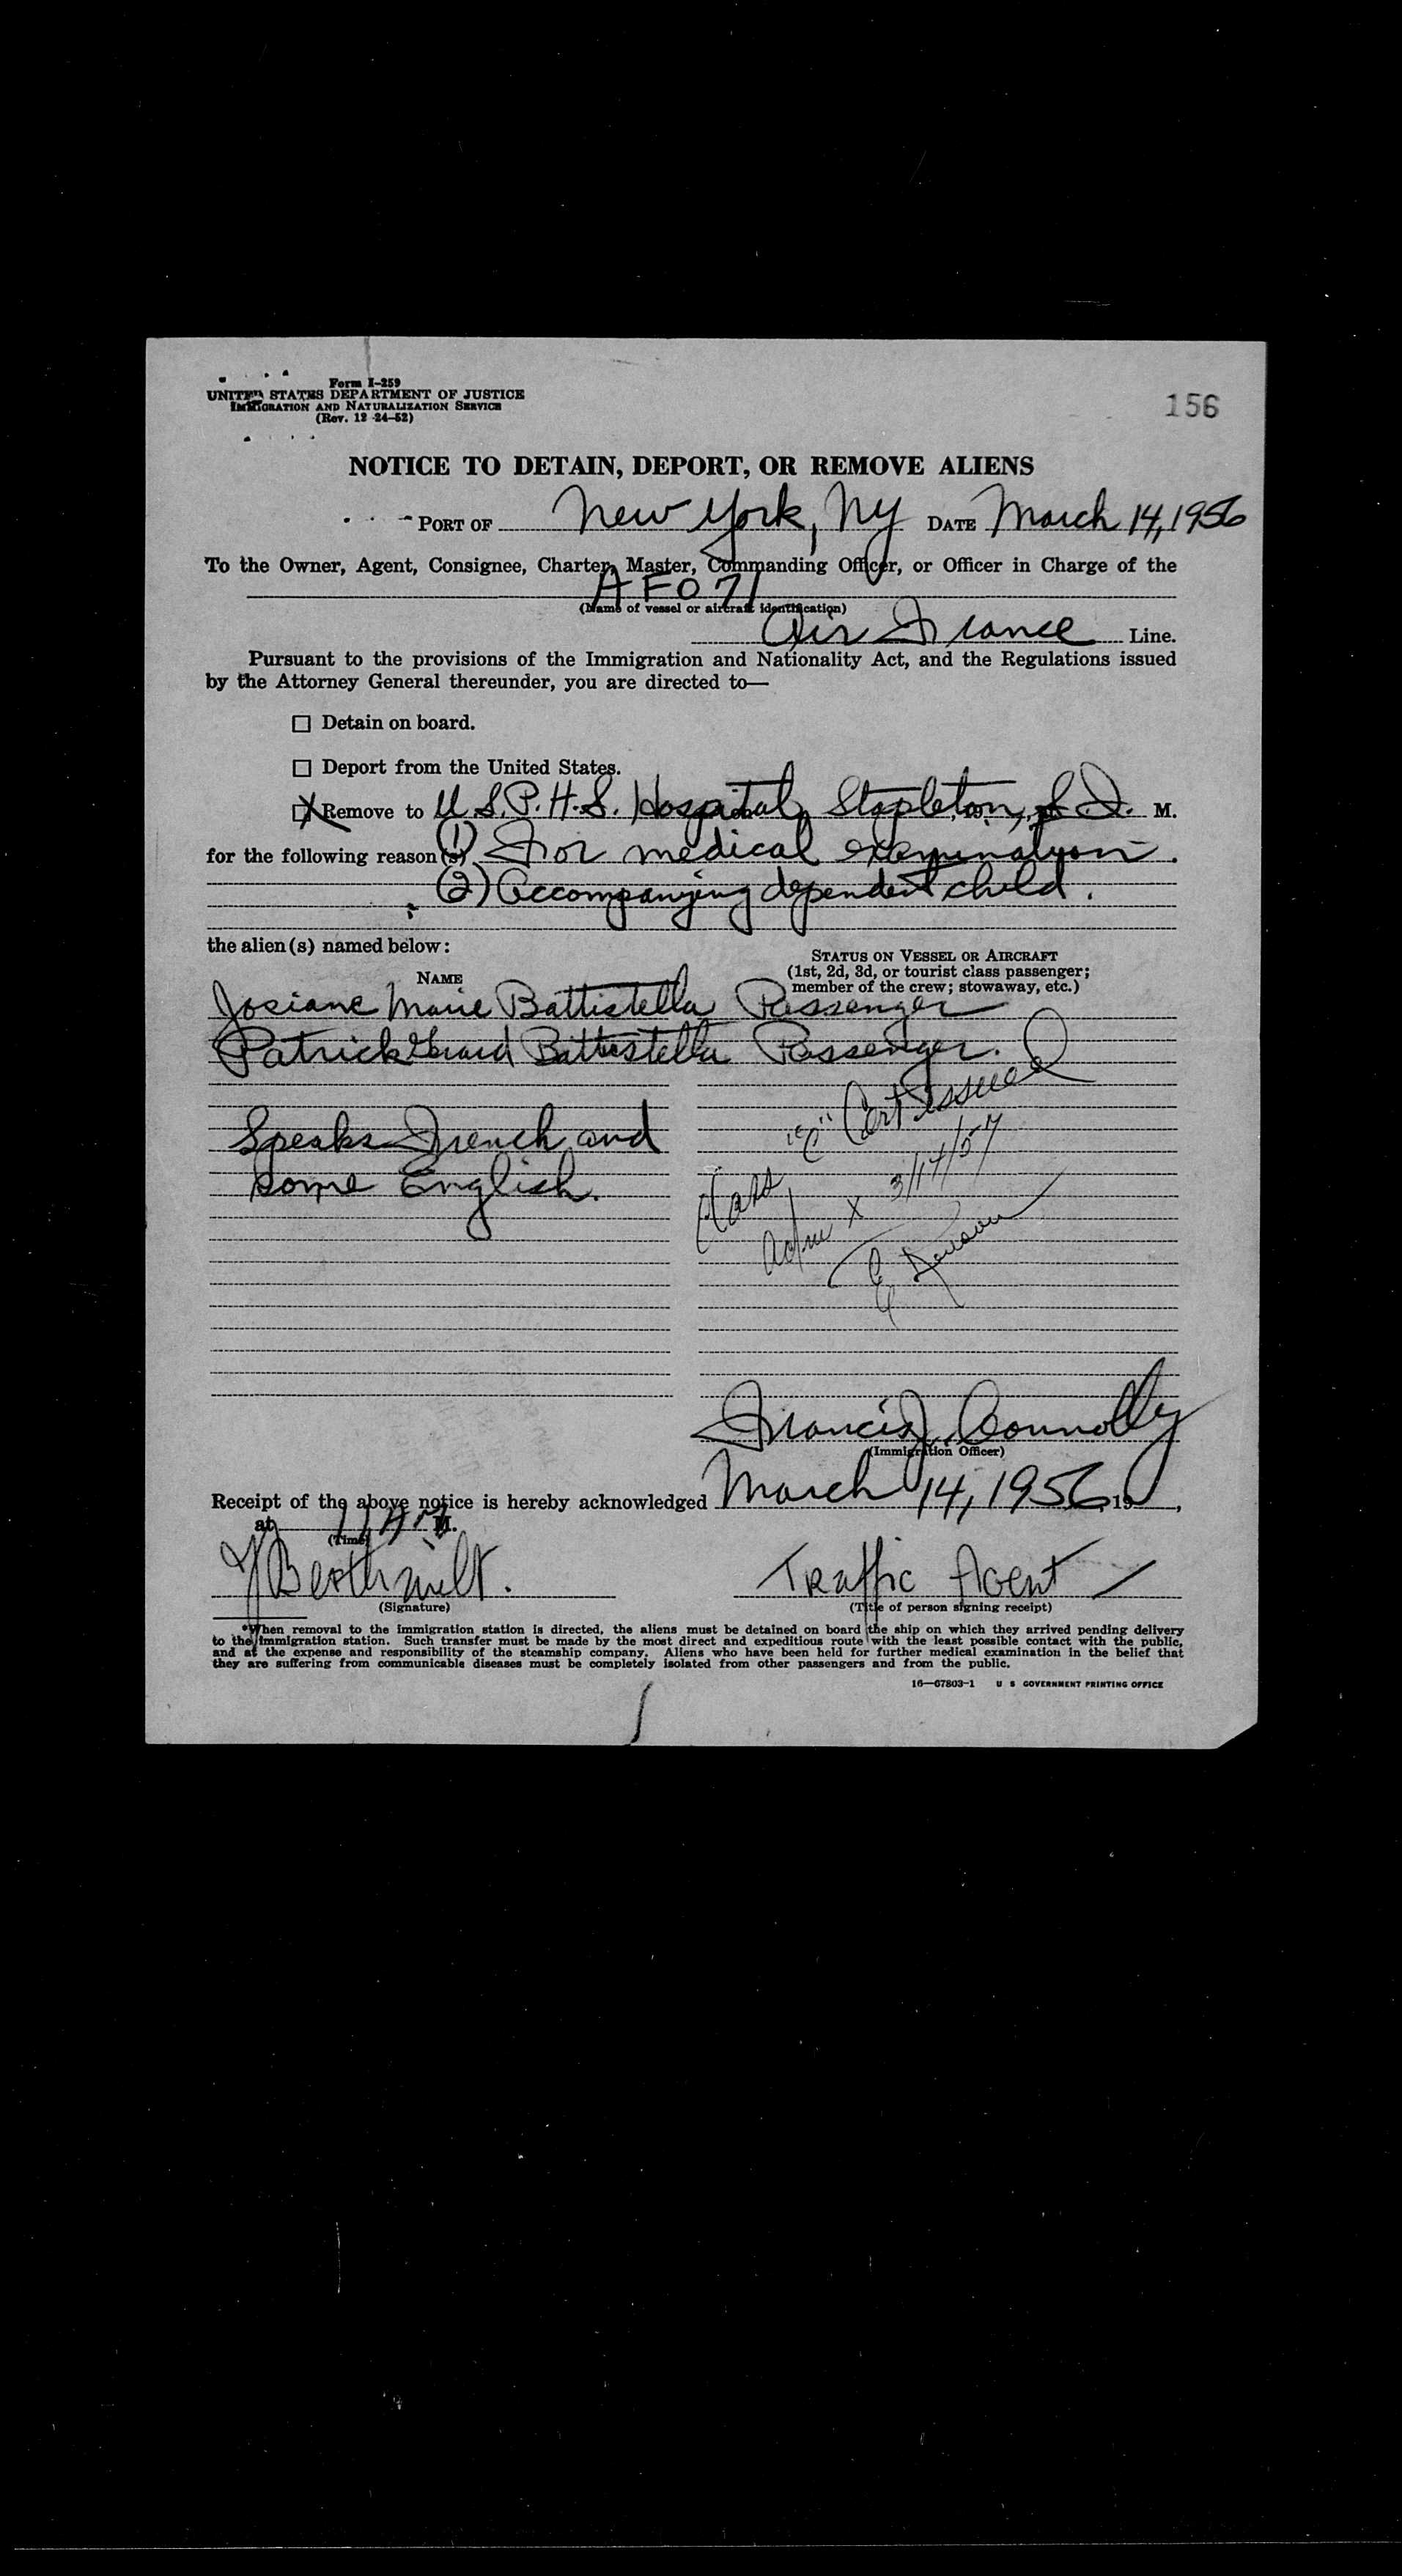 Form I-259
UNITED STATES DEPARTMENT OF JUSTICE
IMMIGRATION AND NATURALIZATION SERVICE
(Rev. 12-24-52)
156
NOTICE TO DETAIN, DEPORT, OR REMOVE ALIENS
PORT OF New York, NY DATE March 14, 1956
To the Owner, Agent, Consignee, Charter, Master, Commanding Officer, or Officer in Charge of the
AF071
(Name of vessel or aircraft identification)
Air France Line.
Pursuant to the provisions of the Immigration and Nationality Act, and the Regulations issued
by the Attorney General thereunder, you are directed to—
☐ Detain on board.
☐ Deport from the United States.
☒ Remove to U.S.P.H.S. Hospital, Stapleton, S.I. M.
for the following reason(s) (1) For medical examination.
(2) Accompanying dependent child.
the alien(s) named below:
NAME
STATUS ON VESSEL OR AIRCRAFT
(1st, 2d, 3d, or tourist class passenger;
member of the crew; stowaway, etc.)
Josiane Marie Battistella Passenger
Patrick Gerard Battistella Passenger.
Speaks French and
some English.
Class "C" Cert issued
3/14/57
Francis J. Connolly
(Immigration Officer)
Receipt of the above notice is hereby acknowledged March 14, 1956, 19
at 11 AM M.
(Time)
Traffic Agent
(Signature)
(Title of person signing receipt)
*When removal to the immigration station is directed, the aliens must be detained on board the ship on which they arrived pending delivery
to the immigration station. Such transfer must be made by the most direct and expeditious route with the least possible contact with the public,
and at the expense and responsibility of the steamship company. Aliens who have been held for further medical examination in the belief that
they are suffering from communicable diseases must be completely isolated from other passengers and from the public.
16—67803-1 U S GOVERNMENT PRINTING OFFICE